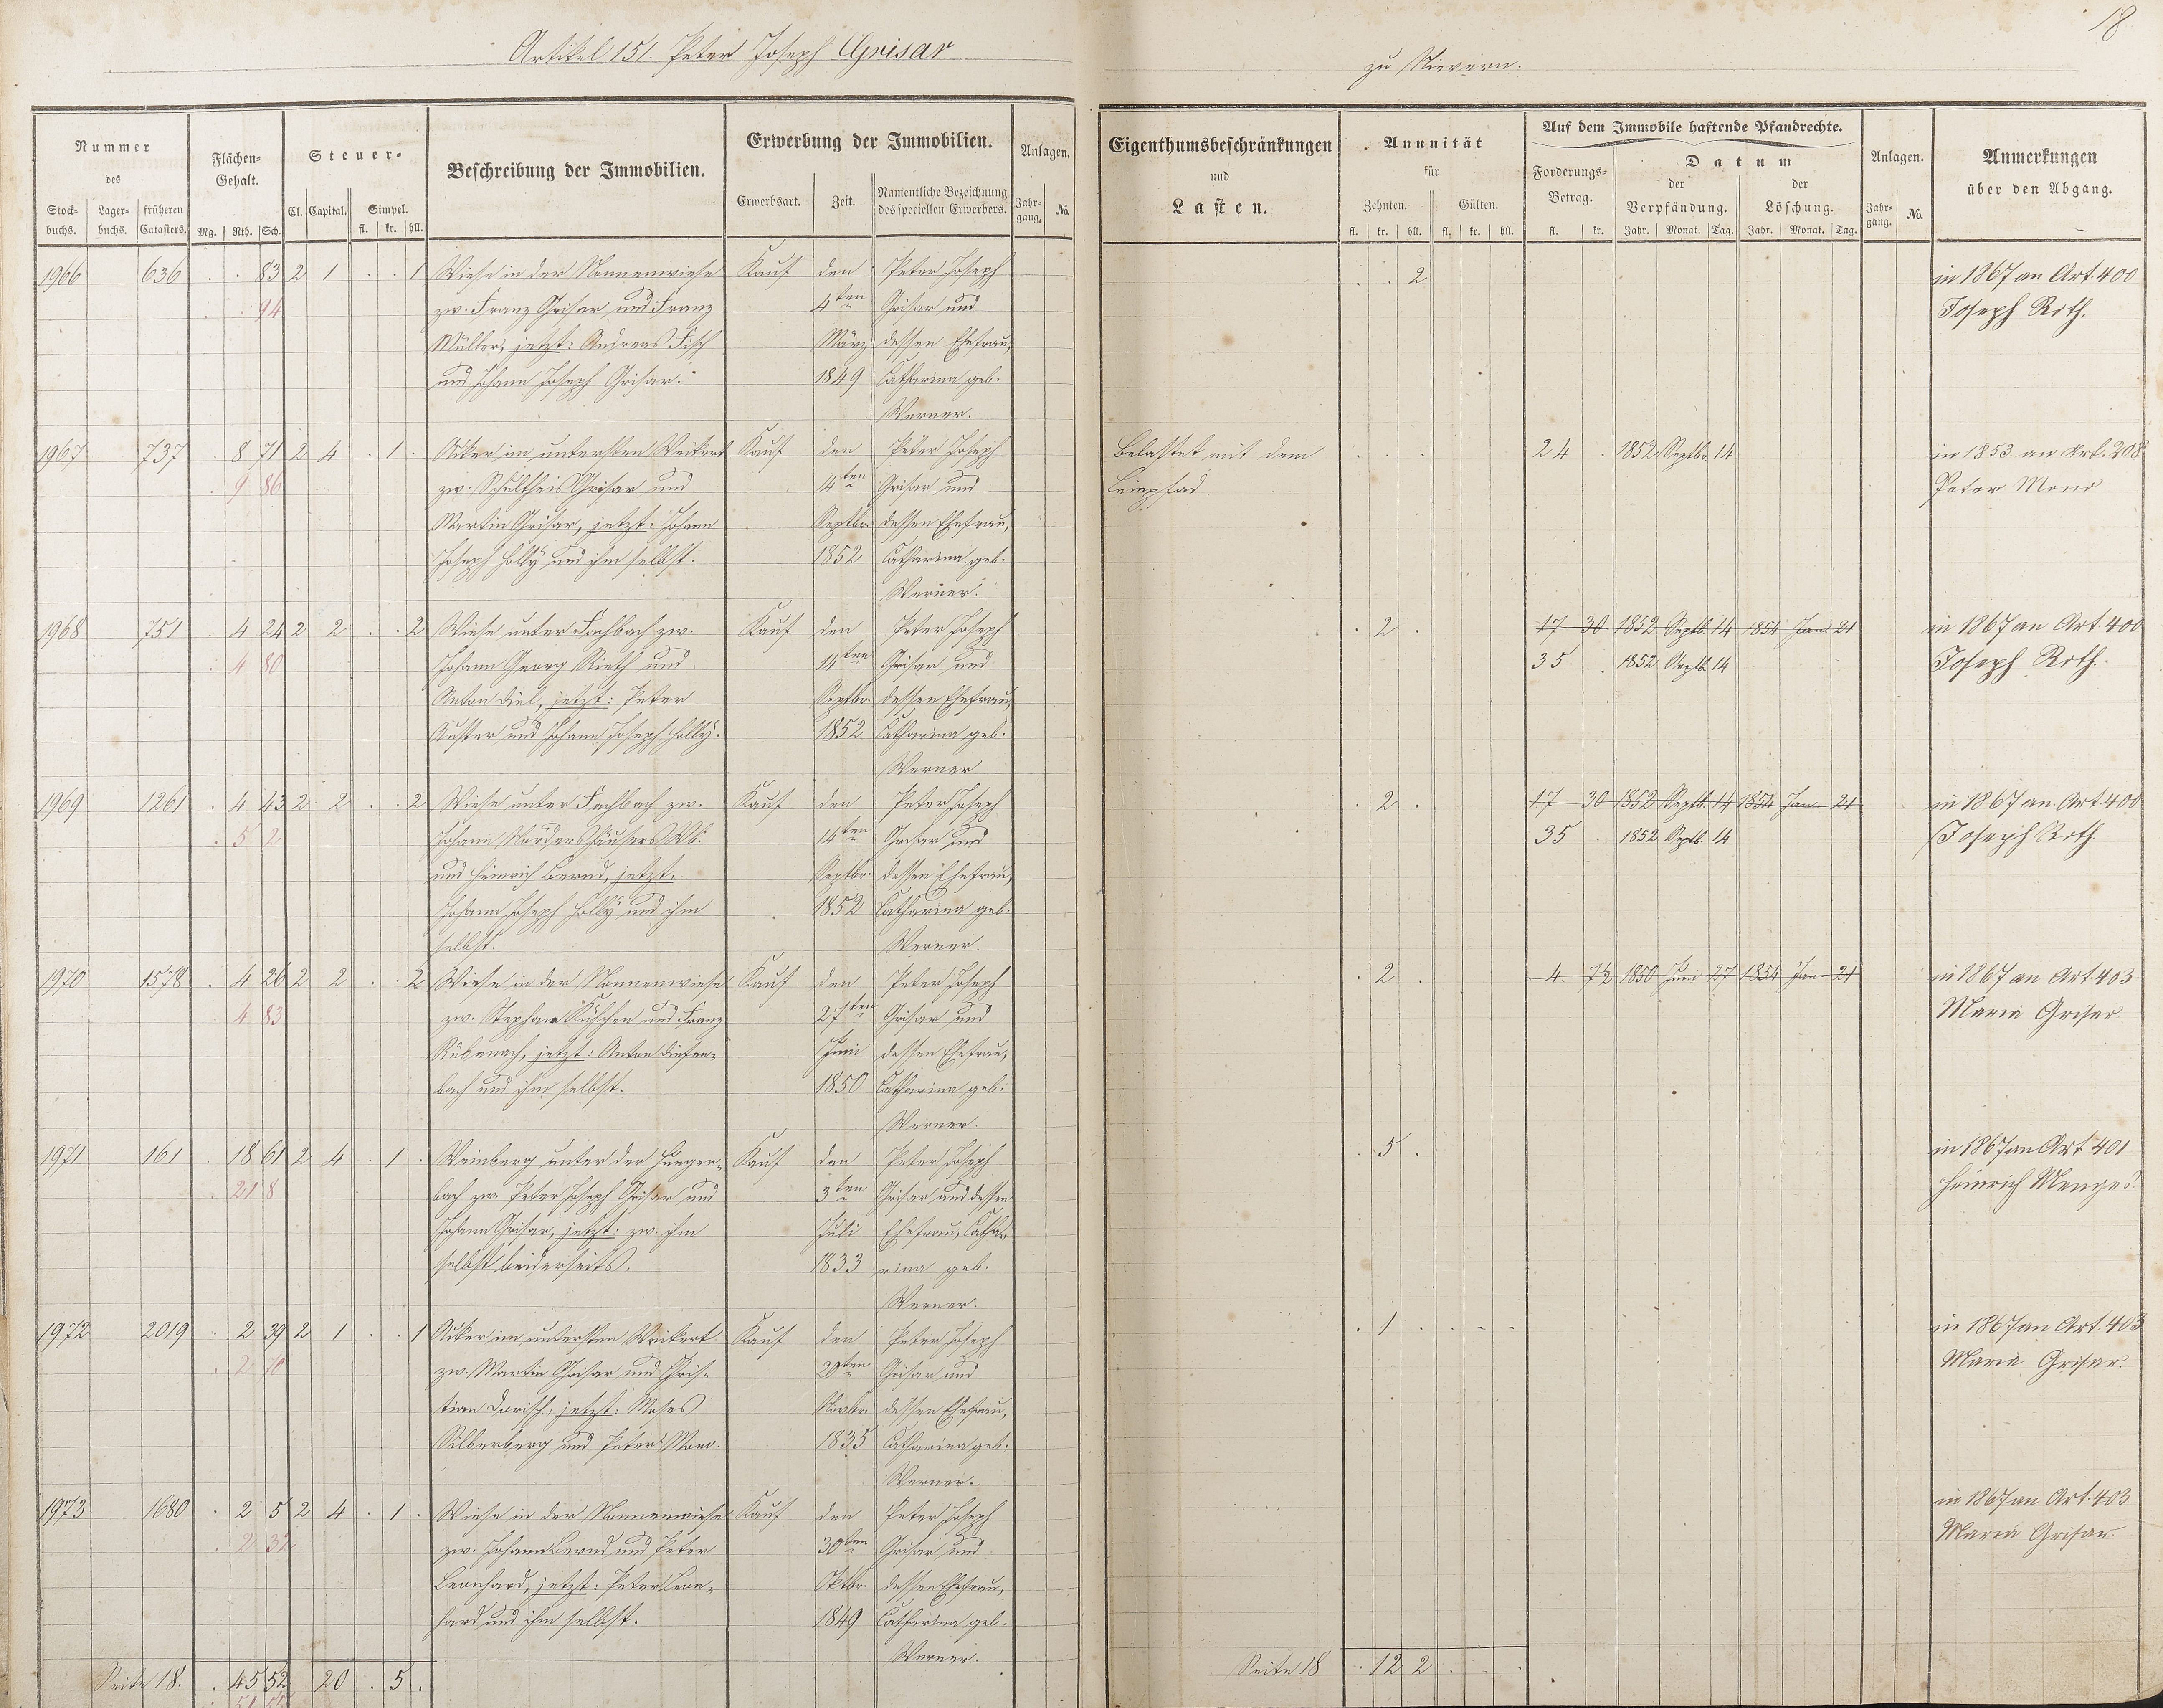 18
Artikel 151. Peter Joseph Grisar
zu Nievern.
Nummer
des
Stock-
buchs.
Lager-
buchs.
früheren
Catasters.
Flächen-
Gehalt.
Mg. Rth. Sch.
Steuer-
Cl. Capital. Simpel.
fl. kr. hll.
Beschreibung der Immobilien.
Erwerbung der Immobilien.
Erwerbsart. Zeit.
Namentliche Bezeichnung
des speciellen Erwerbers.
Anlagen.
Jahr-
gang. No.
Eigenthumsbeschränkungen
und
Lasten.
Annuität
für
Zehnten. Gülten.
fl. kr. hll. fl. kr. hll.
Auf dem Immobile haftende Pfandrechte.
Forderungs-
Betrag.
fl. kr.
Datum
der
Verpfändung.
Jahr. Monat. Tag.
der
Löschung.
Jahr. Monat. Tag.
Anlagen.
Jahr-
gang. No.
Anmerkungen
über den Abgang.
1966 636 . . 83 2 1 . . 1 Wiese in der Nonnenwiese Kauf den Peter Joseph . . 2 in 1867 an Art. 400
. . 94 zw. Franz Grisar und Franz 4ten Grisar und Joseph Roth.
Müller, jetzt: Andreas Fisch März dessen Ehefrau,
und Johann Joseph Grisar. 1849 Catharina geb.
Werner.
1967 737 . 8 71 2 4 . 1 . Acker im untersten Weikert Kauf den Peter Joseph Belastet mit dem . . . 24 . 1852 Septbr. 14 in 1853 an Art. 208
. 9 86 zw. Schultheis Grisar und 14ten Grisar und Leinpfad Peter Mono
Martin Grisar, jetzt: Johann Septbr. dessen Ehefrau,
Joseph Holly und ihm selbst. 1852 Catharina geb.
Werner.
1968 751 . 4 24 2 2 . . 2 Wiese unter Fachbach zw. Kauf den Peter Joseph . 2 . 17 30 1852 Septb. 14 1854 Jan. 21 in 1867 an Art. 400
. 4 80 Johann Georg Rieth und 14ten Grisar und 35 . 1852 Septb. 14 Joseph Roth.
Anton Diel, jetzt: Peter Septbr. dessen Ehefrau,
Kuster und Johann Joseph Holly. 1852 Catharina geb.
Werner
1969 1261 . 4 43 2 2 . . 2 Wiese unter Fachbach zw. Kauf den Peter Joseph . 2 . 17 30 1852 Septb. 14 1854 Jan. 21 in 1867 an Art. 400
. 5 2 Johann Nördershäusers Wb. 14ten Grisar und 35 . 1852 Septb. 14 Joseph Roth
und Heinrich Bernd, jetzt: Septbr. dessen Ehefrau,
Johann Joseph Holly und ihm 1852 Catharina geb.
selbst. Werner.
1970 1578 . 4 26 2 2 . . 2 Wiese in der Nonnenwiese Kauf den Peter Joseph . 2 . 4 7½ 1850 Juni 27 1854 Jan. 21 in 1867 an Art 403
. 4 83 zw. Stephan und Franz 27ten Grisar und Maria Griser
Rübenach, jetzt: Anton Diefen- Juni dessen Ehefrau,
bach und ihm selbst. 1850 Catharina geb.
Werner.
1971 161 . 18 61 2 4 . 1 . Weinberg unter der Hunger- Kauf den Peter Joseph . 5 . in 1867 an Art 401
. 21 8 bach zw. Peter Joseph Grisar und 3ten Grisar und dessen Heinrich Menges
Johann Grisar, jetzt: zw. ihm Juli Ehefrau, Catha-
selbst beiderseits. 1833 rina geb.
Werner.
1972 2019 . 2 39 2 1 . . 1 Acker im untersten Weikert Kauf den Peter Joseph . 1 . . . . in 1867 an Art. 403
. 2 70 zw. Martin Grisar und Chris- 20ten Grisar und Maria Grisar.
tian jetzt: Moses Novbr. dessen Ehefrau,
Silberberg und Peter Mono. 1835 Catharina geb.
Werner.
1973 1680 . 2 5 2 4 . 1 . Wiese in der Nonnenwiese Kauf den Peter Joseph in 1867 an Art. 403
. 2 32 zw. Johann Bernd und Peter 30ten Grisar und Maria Grisar
Leonhard, jetzt: Peter Leon- Oktbr. dessen Ehefrau,
hard und ihm selbst. 1849 Catharina geb.
Werner.
Seite 18. . 45 52 20 . 5 . Seite 18 . 12 2 . . .
51 55